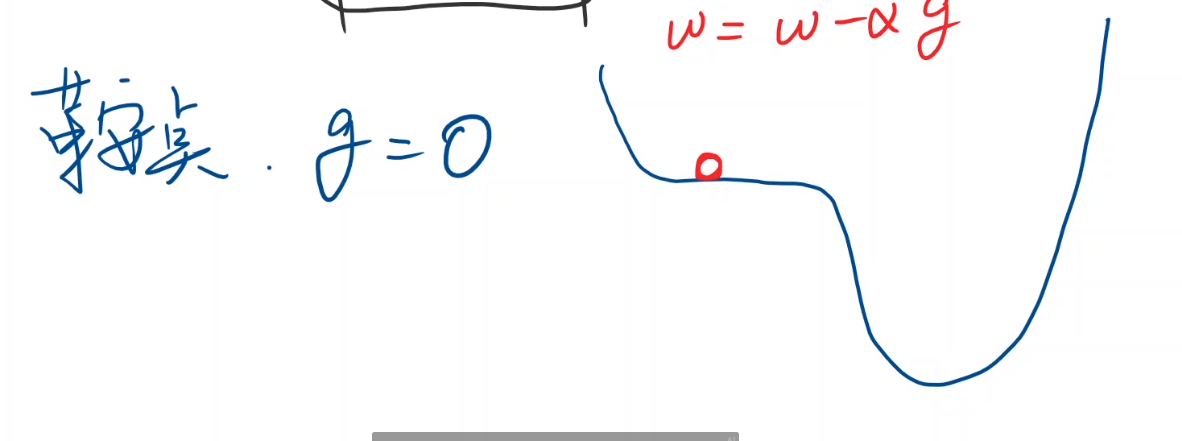 w = w - α g
鞍点. g = 0